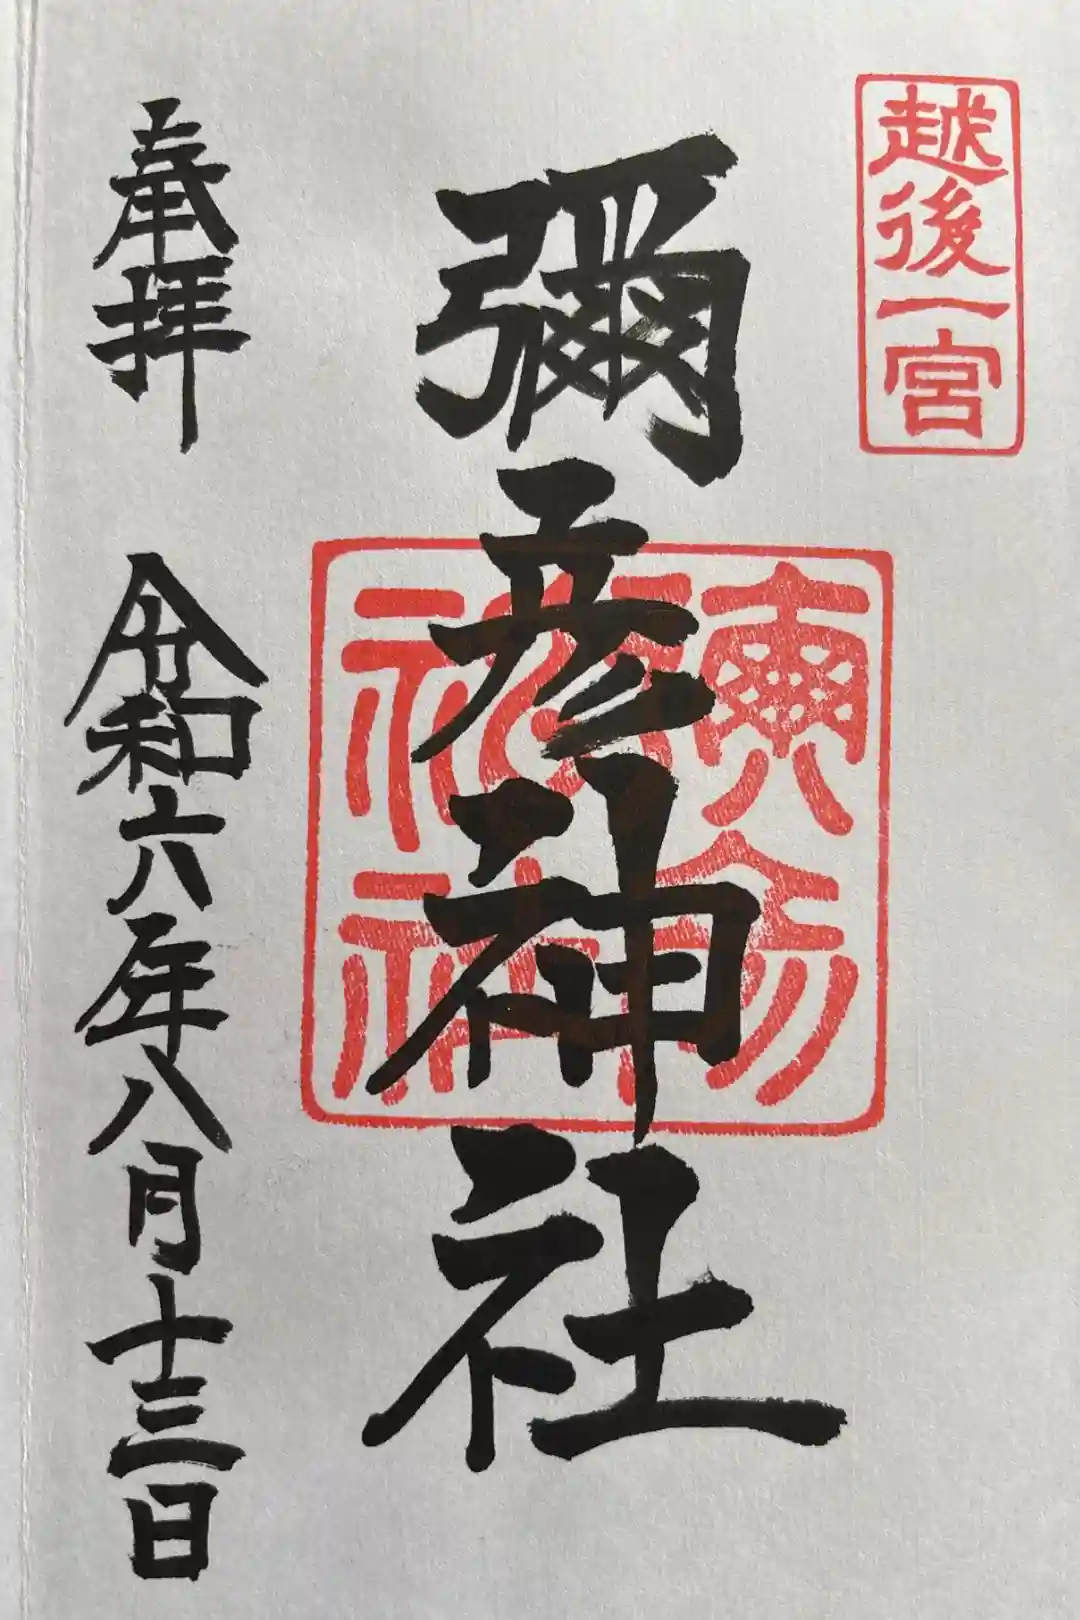 越後一宮
彌彦神社
奉拝
令和六年八月十三日